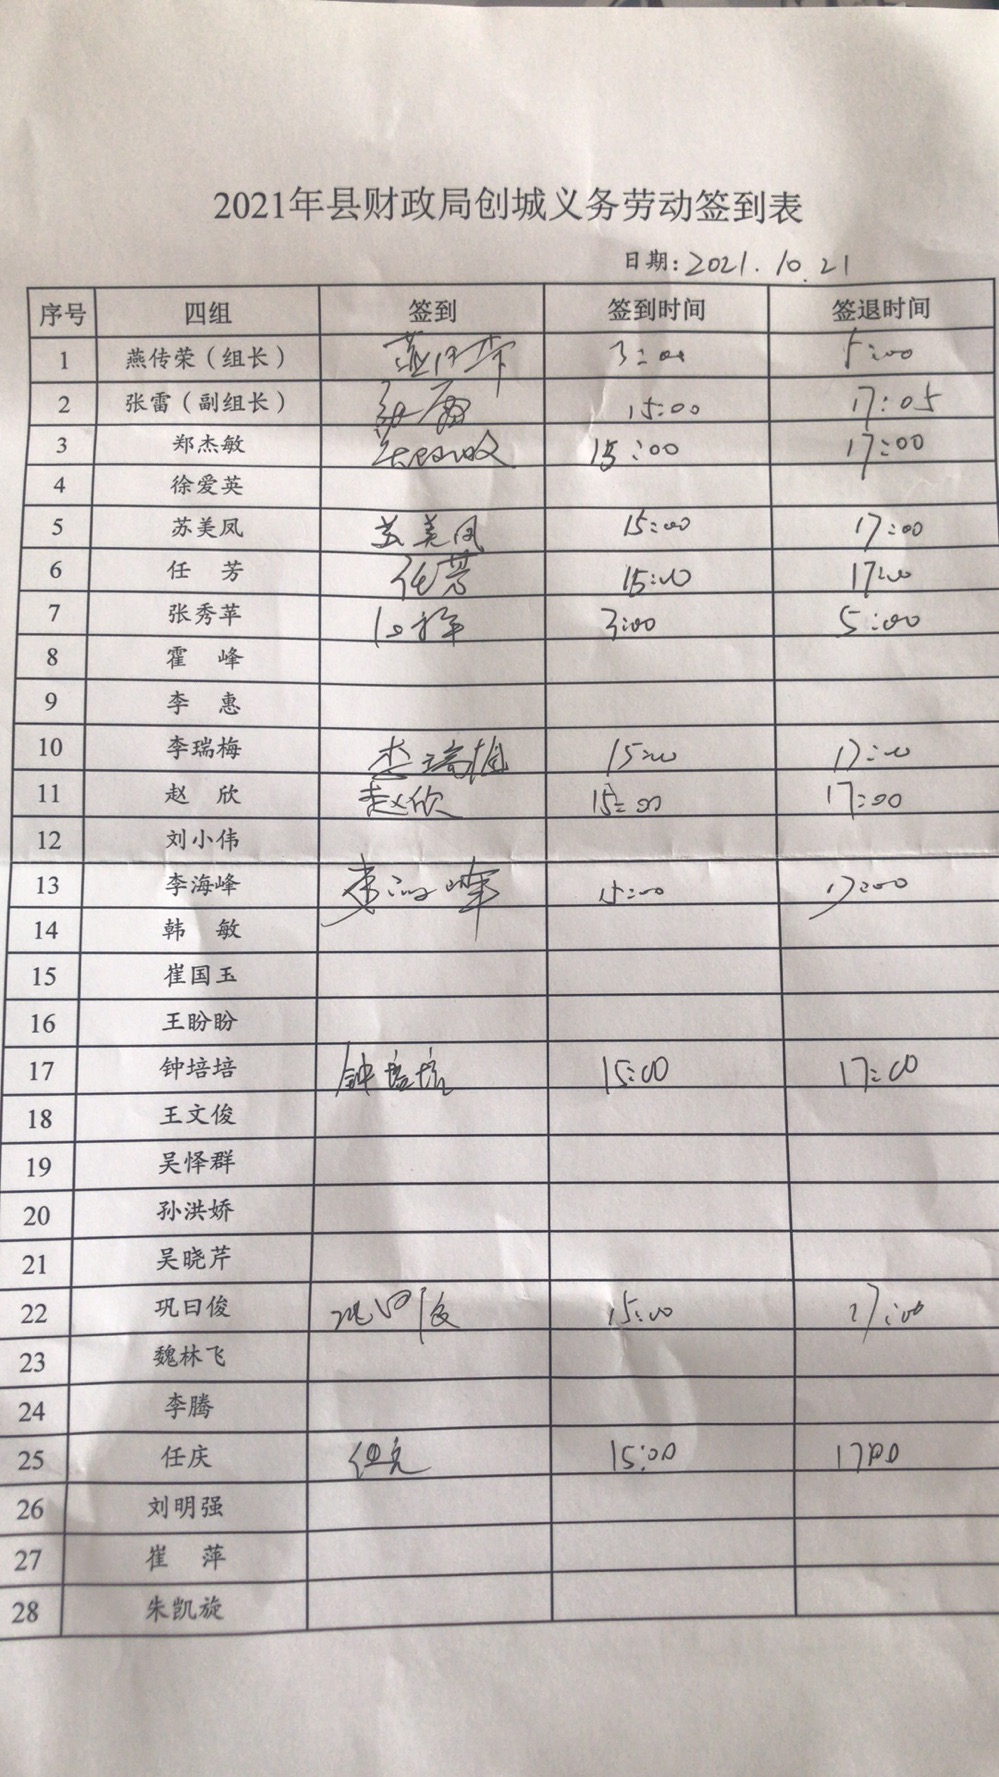 2021年县财政局创城义务劳动签到表
日期: 2021.10.21
序号 四组 签到 签到时间 签退时间
1 燕传荣（组长） 燕传荣 3:00 5:00
2 张雷（副组长） 张雷 15:00 17:05
3 郑杰敏 15:00 17:00
4 徐爱英
5 苏美凤 苏美凤 15:00 17:00
6 任 芳 任芳 15:00 17:00
7 张秀苹 3:00 5:00
8 霍 峰
9 李 惠
10 李瑞梅 李瑞梅 15:00 17:00
11 赵 欣 赵欣 15:00 17:00
12 刘小伟
13 李海峰 李海峰 15:00 17:00
14 韩 敏
15 崔国玉
16 王盼盼
17 钟培培 钟培培 15:00 17:00
18 王文俊
19 吴怿群
20 孙洪娇
21 吴晓芹
22 巩曰俊 巩曰俊 15:00 17:00
23 魏林飞
24 李腾
25 任庆 15:00 17:00
26 刘明强
27 崔 萍
28 朱凯旋